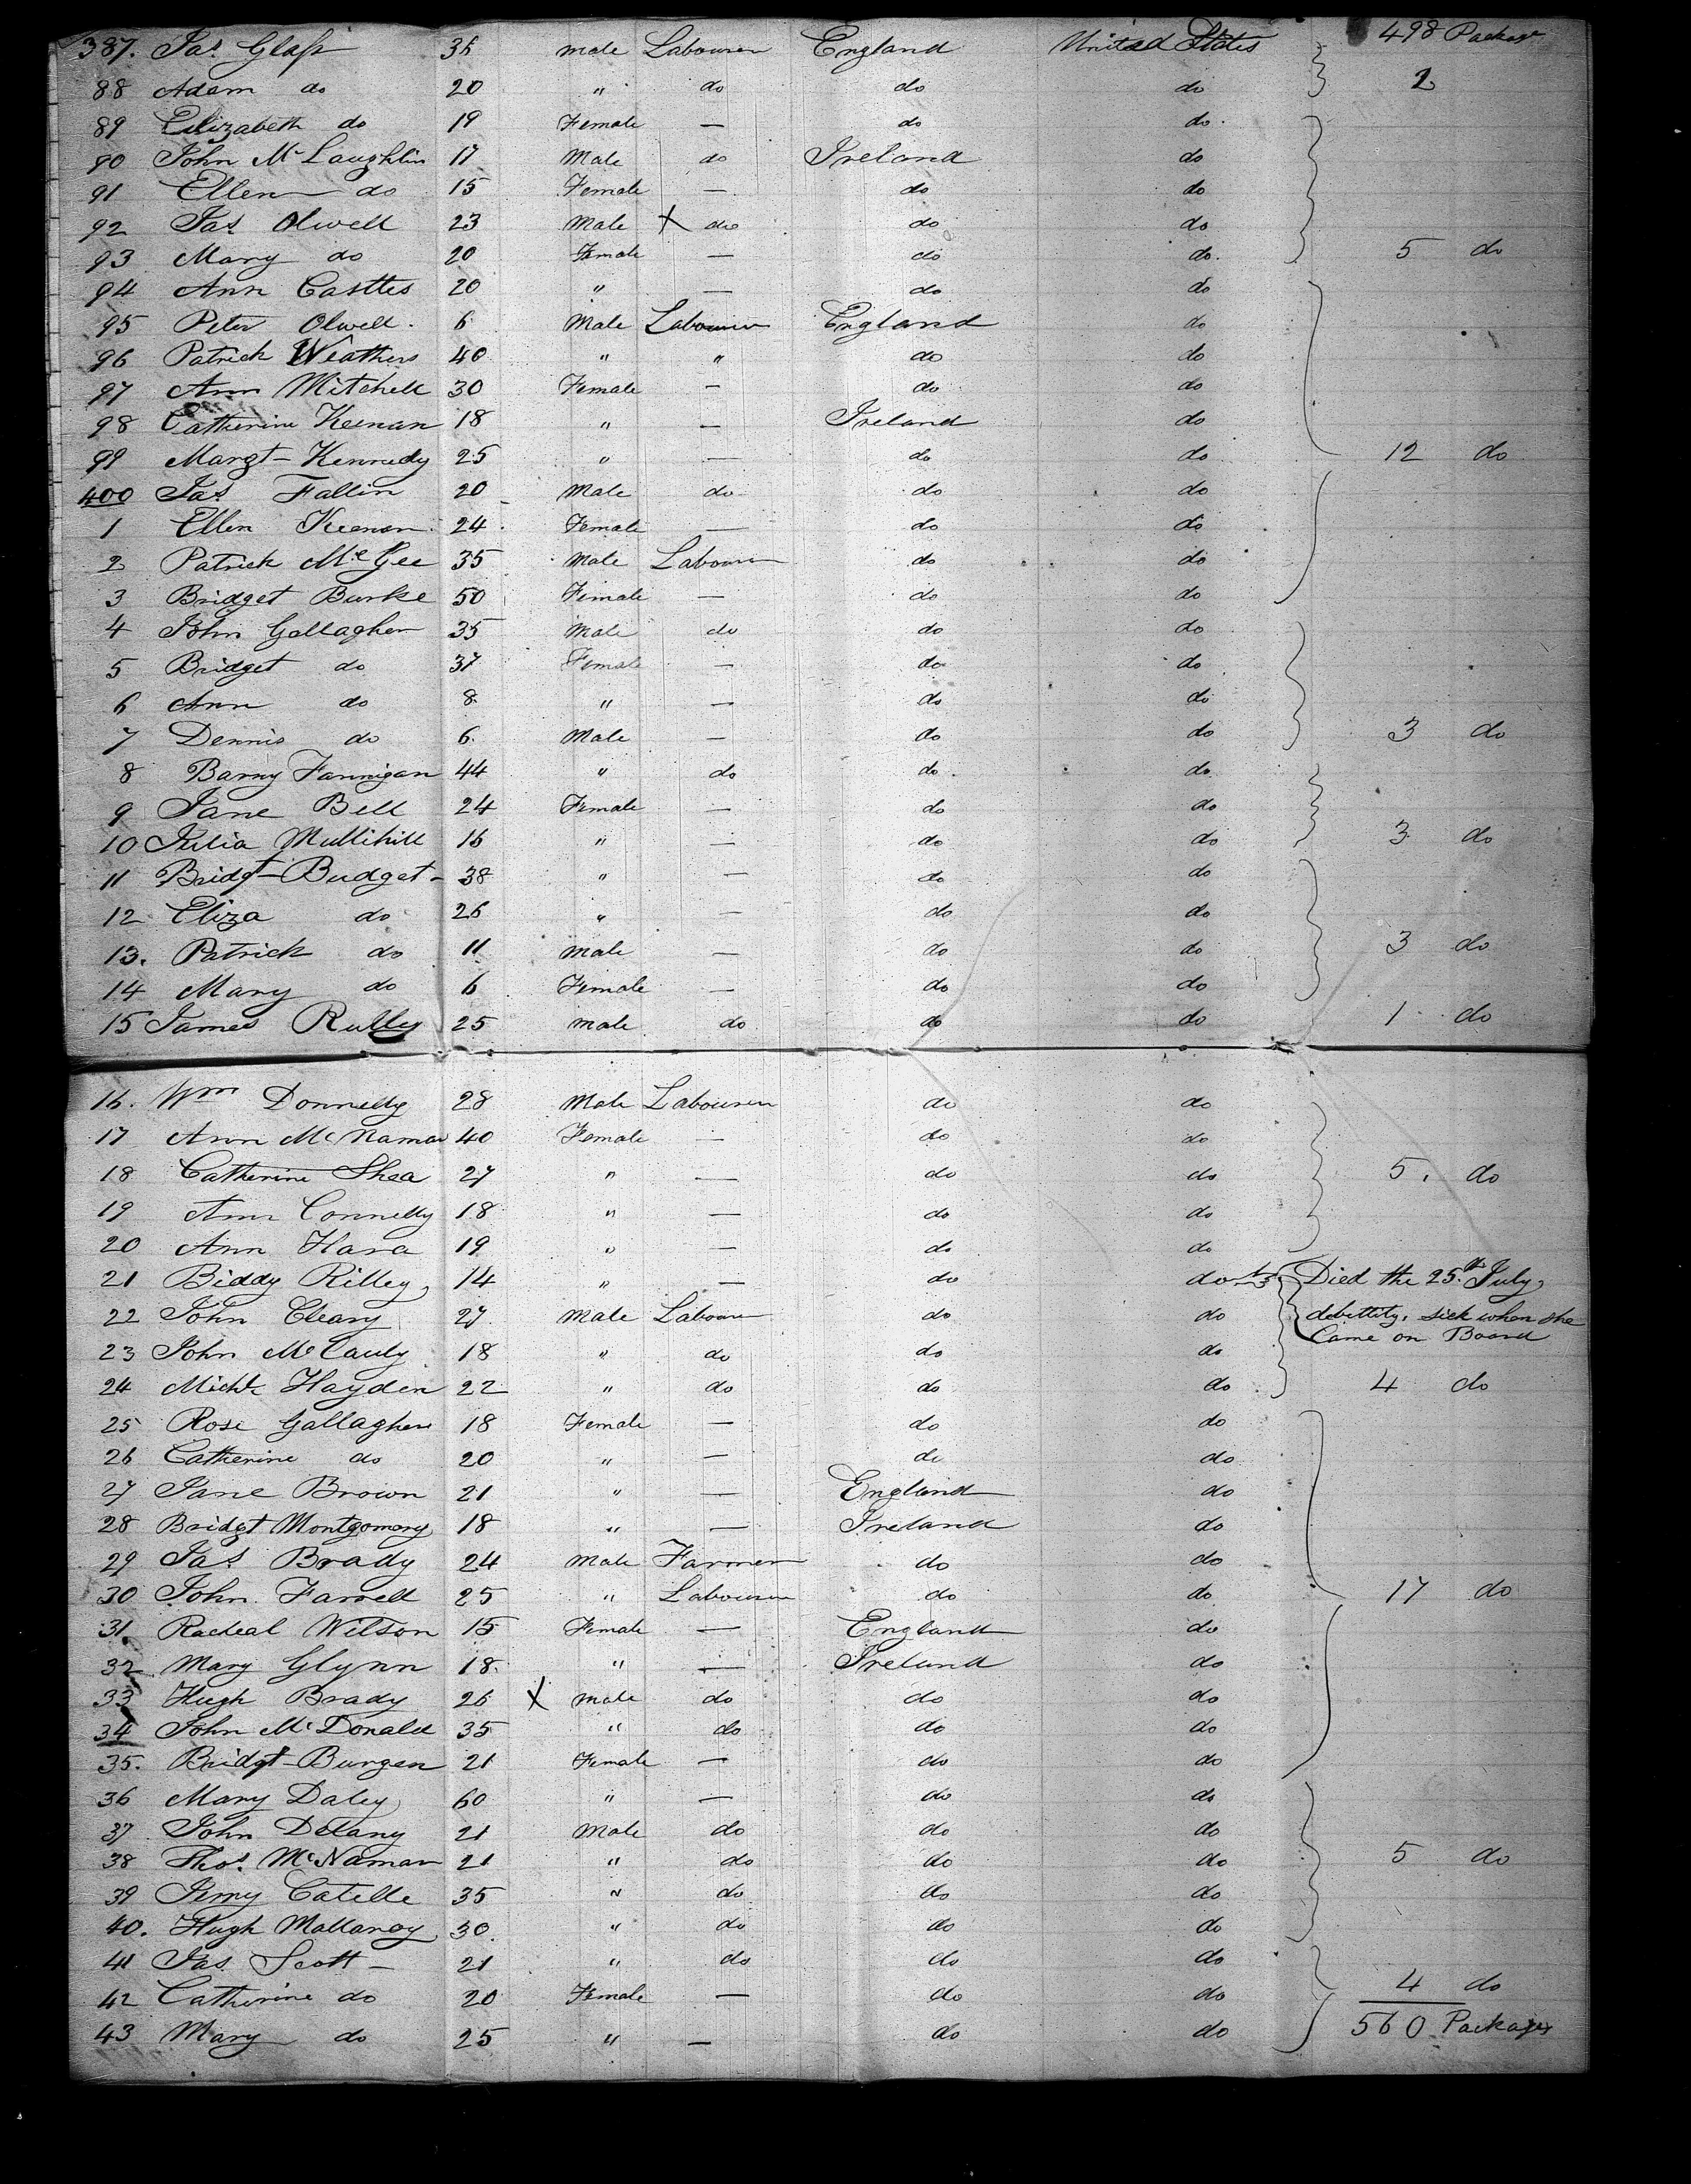 387. Jas Glass 36 male Labourer England United States 498 Package
88 Adam do 20 " do do do 2
89 Elizabeth do 19 Female — do do.
90 John McLaughlin 17 Male do Ireland do
91 Ellen do 15 Female — do do
92 Jas Olwell 23 Male X do do do
93 Mary do 20 Female — do do. 5 do
94 Ann Casttes 20 " — do do
95 Peter Olwell. 6 Male Labourer England do
96 Patrick Weathers 40 " " do do
97 Ann Mitchell 30 Female — do do
98 Catherine Keenan 18 " — Ireland do
99 Margt Kennedy 25 " — do do 12 do
400 Jas Fallin 20 Male do do do
1 Ellen Keenan 24 Female — do do
2 Patrick McGee 35 Male Labourer do do
3 Bridget Burke 50 Female — do do
4 John Gallagher 35 Male do do do
5 Bridget do 37 Female — do do
6 Ann do 8 " — do do
7 Dennis do 6. Male — do do 3 do
8 Barny Fannigan 44 " do do do
9 Jane Bell 24 Female — do do
10 Julia Mullihill 16 " — do do 3 do
11 Bridgt Budget 38 " — do do
12 Eliza do 26 " — do do
13. Patrick do 11 male — do do 3 do
14 Mary do 6 Female — do do
15 James Rulley 25 male do do do 1 do
16. Wm Donnelly 28 Male Labourer do do
17 Ann McNamar 40 Female — do do
18 Catherine Shea 27 " — do do 5. do
19 Ann Connelly 18 " — do do
20 Ann Hara 19 " — do do
21 Biddy Rilley 14 " — do do Died the 25th July
22 John Cleary 27 Male Labourer do do debility, sick when she
Came on Board
23 John McCauly 18 " do do do
24 Michl Hayden 22 " do do do 4 do
25 Rose Gallagher 18 Female — do do
26 Catherine do 20 " — do do
27 Jane Brown 21 " — England do
28 Bridgt Montgomery 18 " — Ireland do
29 Jas Brady 24 Male Farmer do do
30 John Farrell 25 " Labourer do do 17 do
31 Racheal Wilson 15 Female — England do
32 Mary Glynn 18. " — Ireland do
33 Hugh Brady 26 X male do do do
34 John McDonald 35 " do do do
35. Bridgt Burgen 21 Female — do do
36 Mary Daley 60 " — do do
37 John Delany 21 Male do do do
38 Thos. McNamar 21 " do do do 5 do
39 Jemy Catelle 35 " do do do
40. Hugh Mallaney 30. " do do do
41 Jas Scott — 21 " do do do
42 Catherine do 20 Female — do do 4 do
43 Mary do 25 " — do do 560 Packages